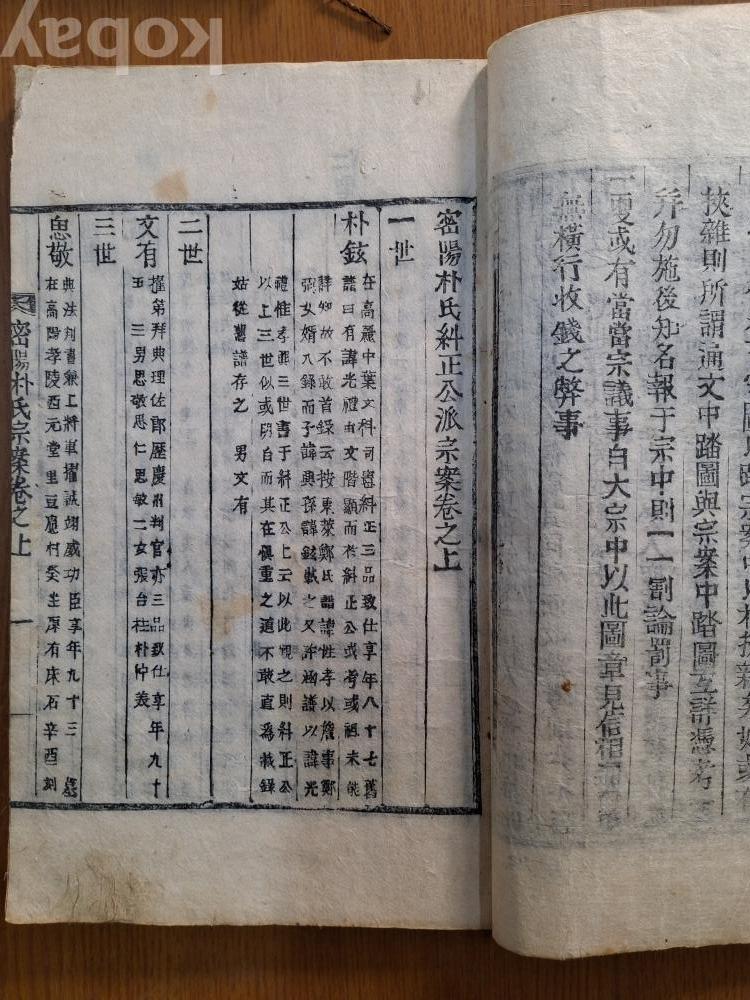 kobay
挾雜則所謂通文中踏圖與宗案中踏圖互詳憑考
幷勿施後知名報于宗中則一一割論罰事
一更或有當當宗議事白大宗中以此圖章見信相
無橫行收錢之弊事
密陽朴氏糾正公派宗案卷之上
一世
朴鉉
在高麗中葉文科司憲糾正三品致仕享年八十七舊
譜曰有諱光禮由文階顯而於糾正公或考或祖未能
詳知故不敢首錄云按東萊鄭氏譜諱性孝以詹事鄭
弼女婿入錄而子諱興孫諱鉉載之又許涵譜以諱光
禮惟孝興三世書于糾正公上云以此觀之則糾正公
以上三世似或明白而其在俱重之道不敢直爲載錄
姑從舊譜存之 男文有
二世
文有
擢第拜典理佐郞歷慶州判官亦三品致仕享年九十
五 三男思敬思仁思敏二女張台柱朴忱妻
三世
思敬
典法判書兼上將軍擢誠翊威功臣享年九十三 墓
在高陽孝陵西元堂里豆應村癸坐厚有床石辛酉刻
密陽朴氏宗案卷之上 一